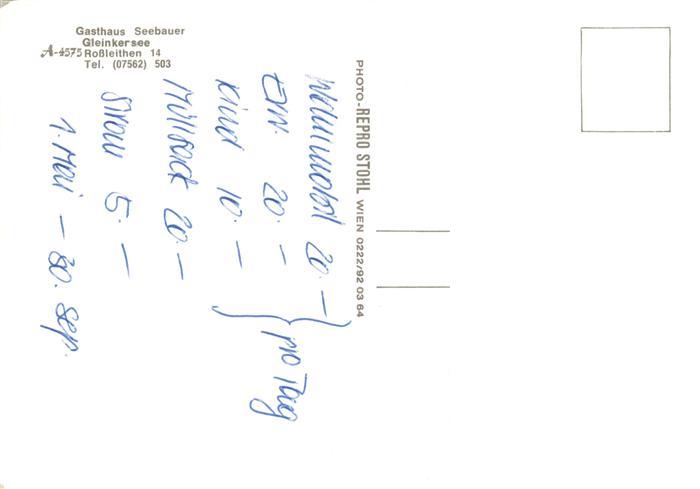 Gasthaus Seebauer
Gleinkersee
A-4575 Roßleithen 14
Tel. (07562) 503
PHOTO-REPRO STOHL WIEN 0222/92 03 64
Wohnmobil 20.—
Erw. 20.—
Kind 10.—
pro Tag
Müllsack 20.—
Strom 5.—
1. Mai — 30. Sep.